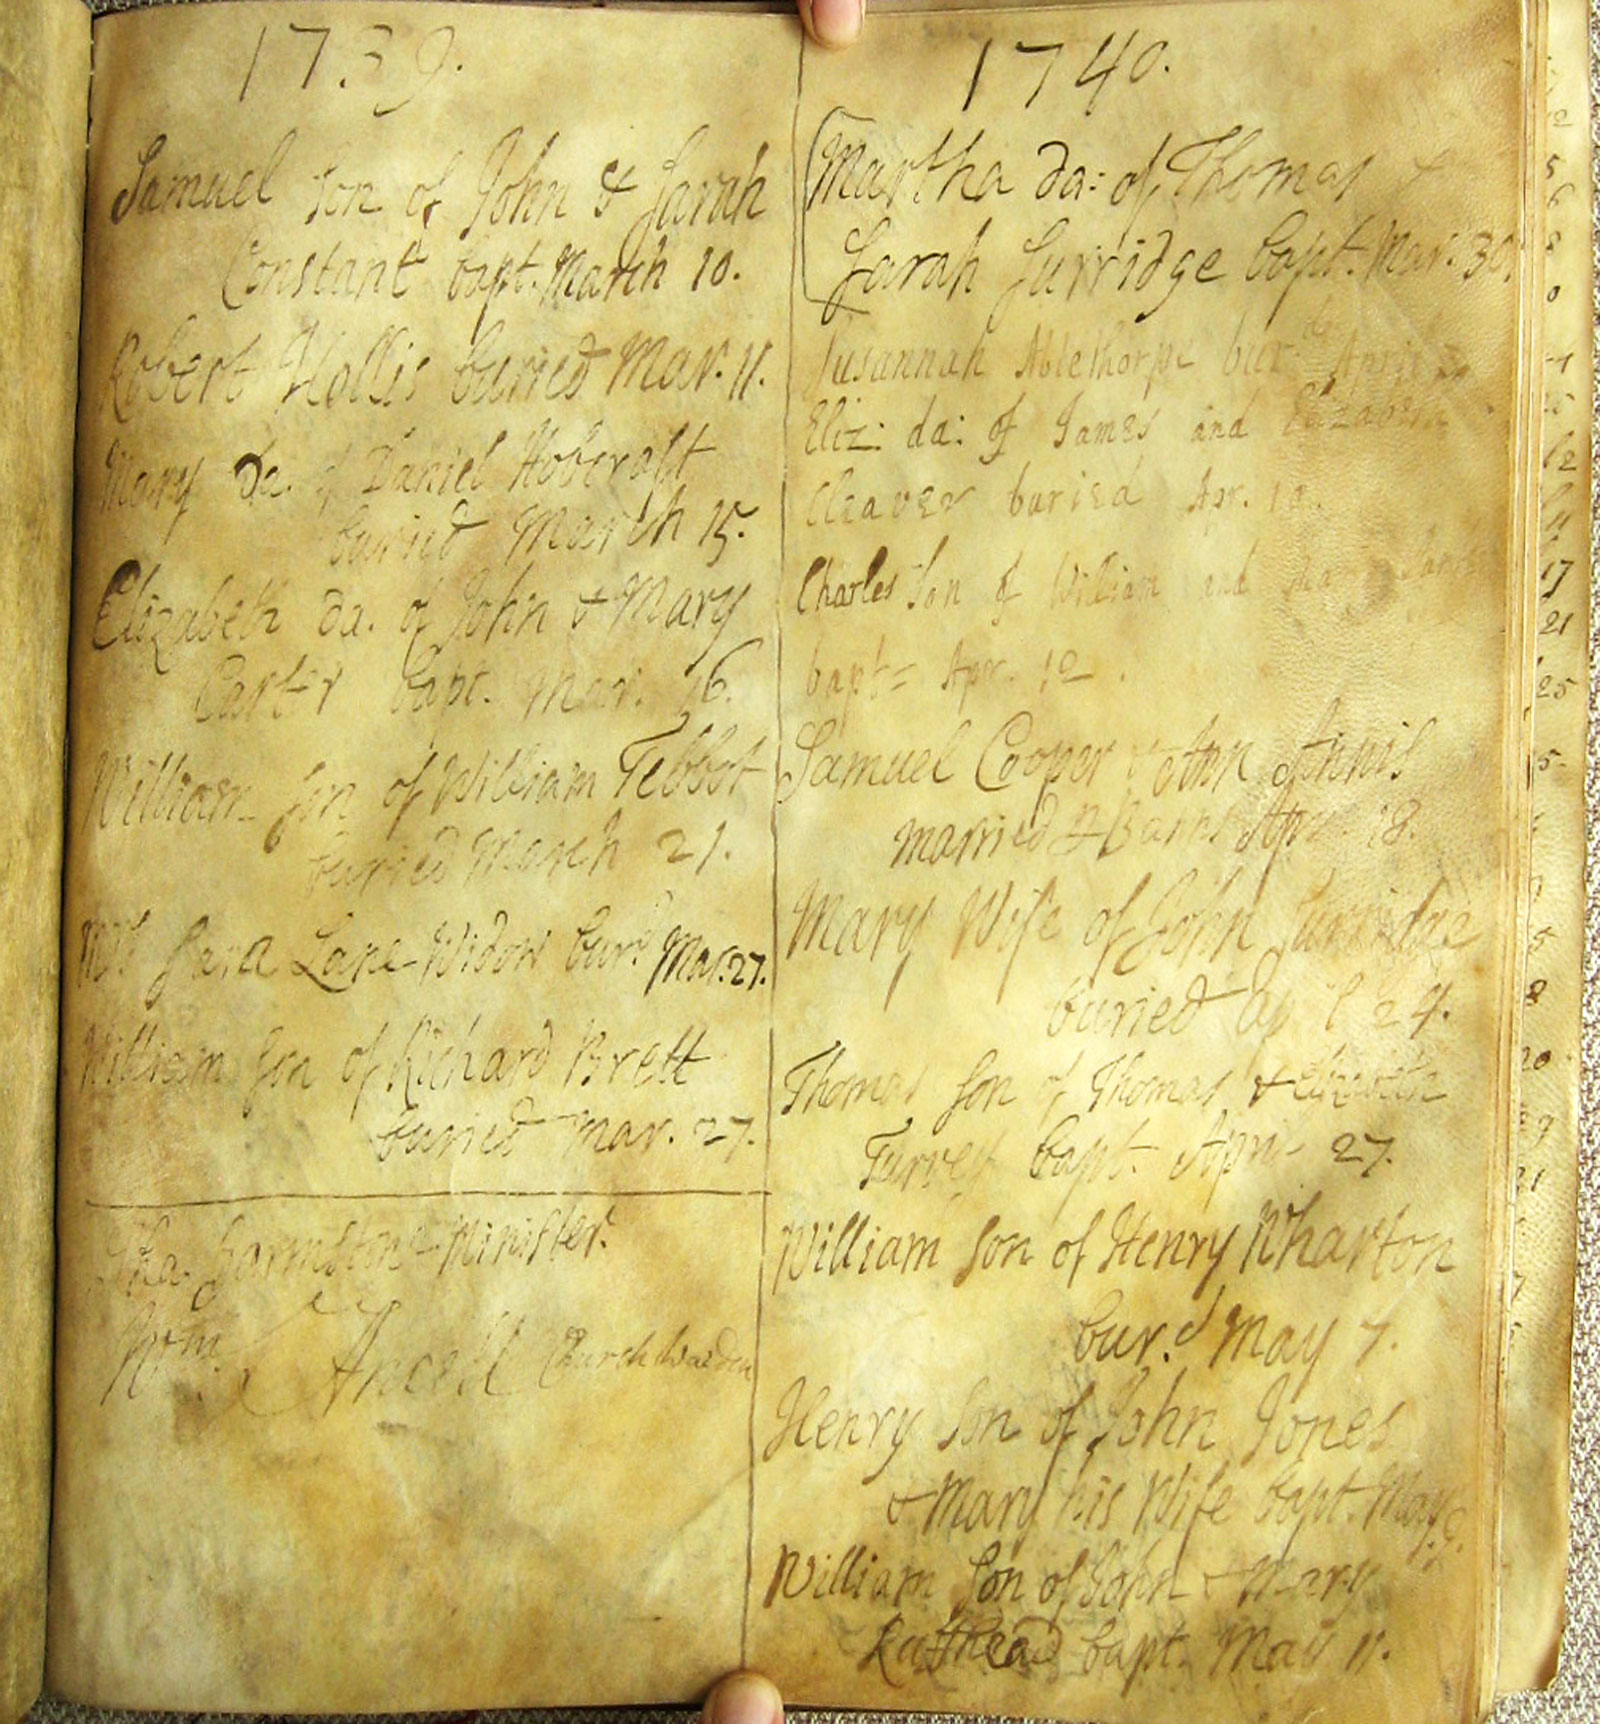 1739.
Samuel Son of John & Sarah
Constant bapt. March 10.
Robert Hollis buried Mar. 11.
Mary da. of Daniel Hobcraft
buried March 15.
Elizabeth da. of John & Mary
Carter bapt. Mar. 16.
William Son of William Tebbot
buried March 21.
Mrs Lane Widow bur.d Mar. 27.
William Son of Richard Brett
buried Mar. 27.
Minister.
Wm. Ancell Churchwarden
1740.
Martha da: of Thomas &
Sarah Surridge bapt. Mar. 30.
Susannah Ablethorpe bur.d April
Eliz: da: of James and Elizabeth
Cleaver buried Apr. 10.
Charles Son of William and
bapt= Apr. 12.
Samuel Cooper & Ann Annis
married Banns Apr 18.
Mary Wife of John Surridge
buried 24.
Thomas Son of Thomas & Elizabeth
Turvey bapt. Apr. 27.
William Son of Henry Wharton
bur.d May 7.
Henry Son of John Jones
& Mary his Wife bapt. May 9.
William Son of John & Mary
bapt. May 11.
2
5
6
8
0
12
17
21
25
5
8
20
9
21
7